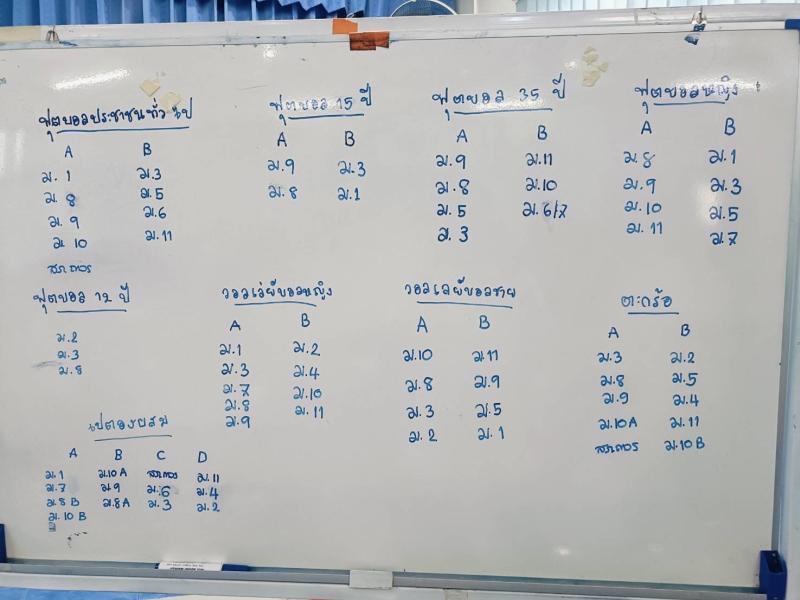 ฟุตบอลประชาชนทั่วไป
A B
ม.1 ม.3
ม.8 ม.5
ม.9 ม.6
ม.10 ม.11
สภ.ถาวร
ฟุตบอล 15 ปี
A B
ม.9 ม.3
ม.8 ม.1
ฟุตบอล 35 ปี
A B
ม.9 ม.11
ม.8 ม.10
ม.5 ม.6/7
ม.3
ฟุตบอลหญิง
A B
ม.8 ม.1
ม.9 ม.3
ม.10 ม.5
ม.11 ม.7
ฟุตบอล 12 ปี
ม.2
ม.3
ม.8
วอลเล่ย์บอลหญิง
A B
ม.1 ม.2
ม.3 ม.4
ม.7 ม.10
ม.8 ม.11
ม.9
วอลเลย์บอลชาย
A B
ม.10 ม.11
ม.8 ม.9
ม.3 ม.5
ม.2 ม.1
ตะกร้อ
A B
ม.3 ม.2
ม.8 ม.5
ม.9 ม.4
ม.10A ม.11
สภ.ถาวร ม.10B
เปตองผสม
A B C D
ม.1 ม.10A สภ.ถาวร ม.11
ม.7 ม.9 ม.6 ม.4
ม.8B ม.8A ม.3 ม.2
ม.10B